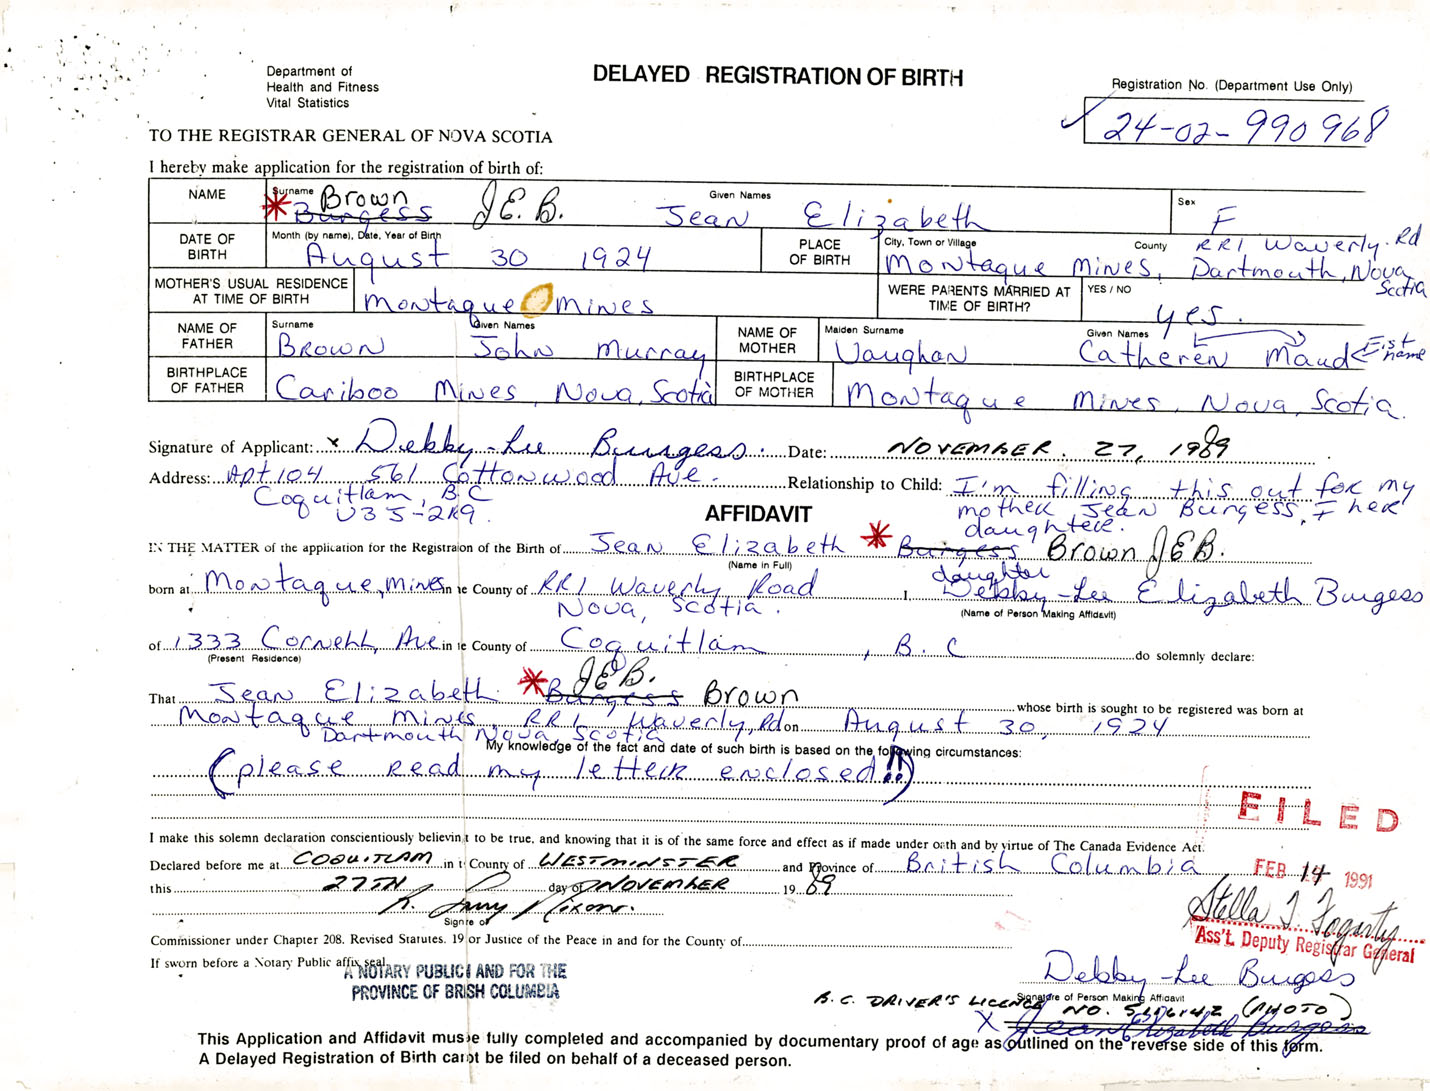 Department of
Health and Fitness
Vital Statistics
DELAYED REGISTRATION OF BIRTH
Registration No. (Department Use Only)
24-02-990968
TO THE REGISTRAR GENERAL OF NOVA SCOTIA
I hereby make application for the registration of birth of:
NAME
Surname
Brown
Burgess
J.E.B.
Given Names
Jean Elizabeth
Sex
F
DATE OF BIRTH
Month (by name), Date, Year of Birth
August 30 1924
PLACE OF BIRTH
City, Town or Village
County
RR1 Waverly Rd
Montaque Mines, Dartmouth, Nova Scotia
MOTHER'S USUAL RESIDENCE AT TIME OF BIRTH
Montaque Mines
WERE PARENTS MARRIED AT TIME OF BIRTH?
YES / NO
yes.
NAME OF FATHER
Surname
Given Names
Brown John Murray
NAME OF MOTHER
Maiden Surname
Given Names
Vaughan Catheren Maud
First name
BIRTHPLACE OF FATHER
Cariboo Mines, Nova, Scotia
BIRTHPLACE OF MOTHER
Montaque Mines, Nova, Scotia.
Signature of Applicant: x Debby-Lee Burgess. Date: NOVEMBER. 27, 1989
Address: Apt 104 561 Cottonwood Ave. Relationship to Child: I'm filling this out for my
Coquitlam, B.C
V3J-2R9.
mother Jean Burgess, I her
daughter.
AFFIDAVIT
IN THE MATTER of the application for the Registraion of the Birth of Jean Elizabeth Burgess Brown J.E.B.
(Name in Full)
daughter
born at Montaque, Mines in e County of RR1 Waverly Road I, Debby-Lee Elizabeth Burgess
Nova, Scotia.
(Name of Person Making Affidavit)
of 1333 Cornell, Ave in e County of Coquitlam, B.C do solemnly declare:
(Present Residence)
J.E.B.
That Jean Elizabeth Burgess Brown whose birth is sought to be registered was born at
Montaque Mines, RR1, Waverly, Rd on August 30, 1924
Dartmouth Nova, Scotia
My knowledge of the fact and date of such birth is based on the following circumstances:
(please read my letter enclosed!!)
FILED
I make this solemn declaration conscientiously believing it to be true, and knowing that it is of the same force and effect as if made under oath and by virtue of The Canada Evidence Act.
Declared before me at COQUITLAM in t County of WESTMINSTER and Province of British Columbia
FEB 14 1991
this 27TH day of NOVEMBER 1989
Signre of
Stella T. Fogarty
Ass't. Deputy Registrar General
Commissioner under Chapter 208. Revised Statutes. 19 or Justice of the Peace in and for the County of
If sworn before a Notary Public affix seal.
A NOTARY PUBLIC I AND FOR THE
PROVINCE OF BRISH COLUMBIA
Debby-Lee Burgess
Signature of Person Making Affidavit
B.C. DRIVER'S LICENCE NO. (PHOTO)
X Jean Elizabeth Burgess
This Application and Affidavit mus e fully completed and accompanied by documentary proof of age as outlined on the reverse side of this form.
A Delayed Registration of Birth canot be filed on behalf of a deceased person.